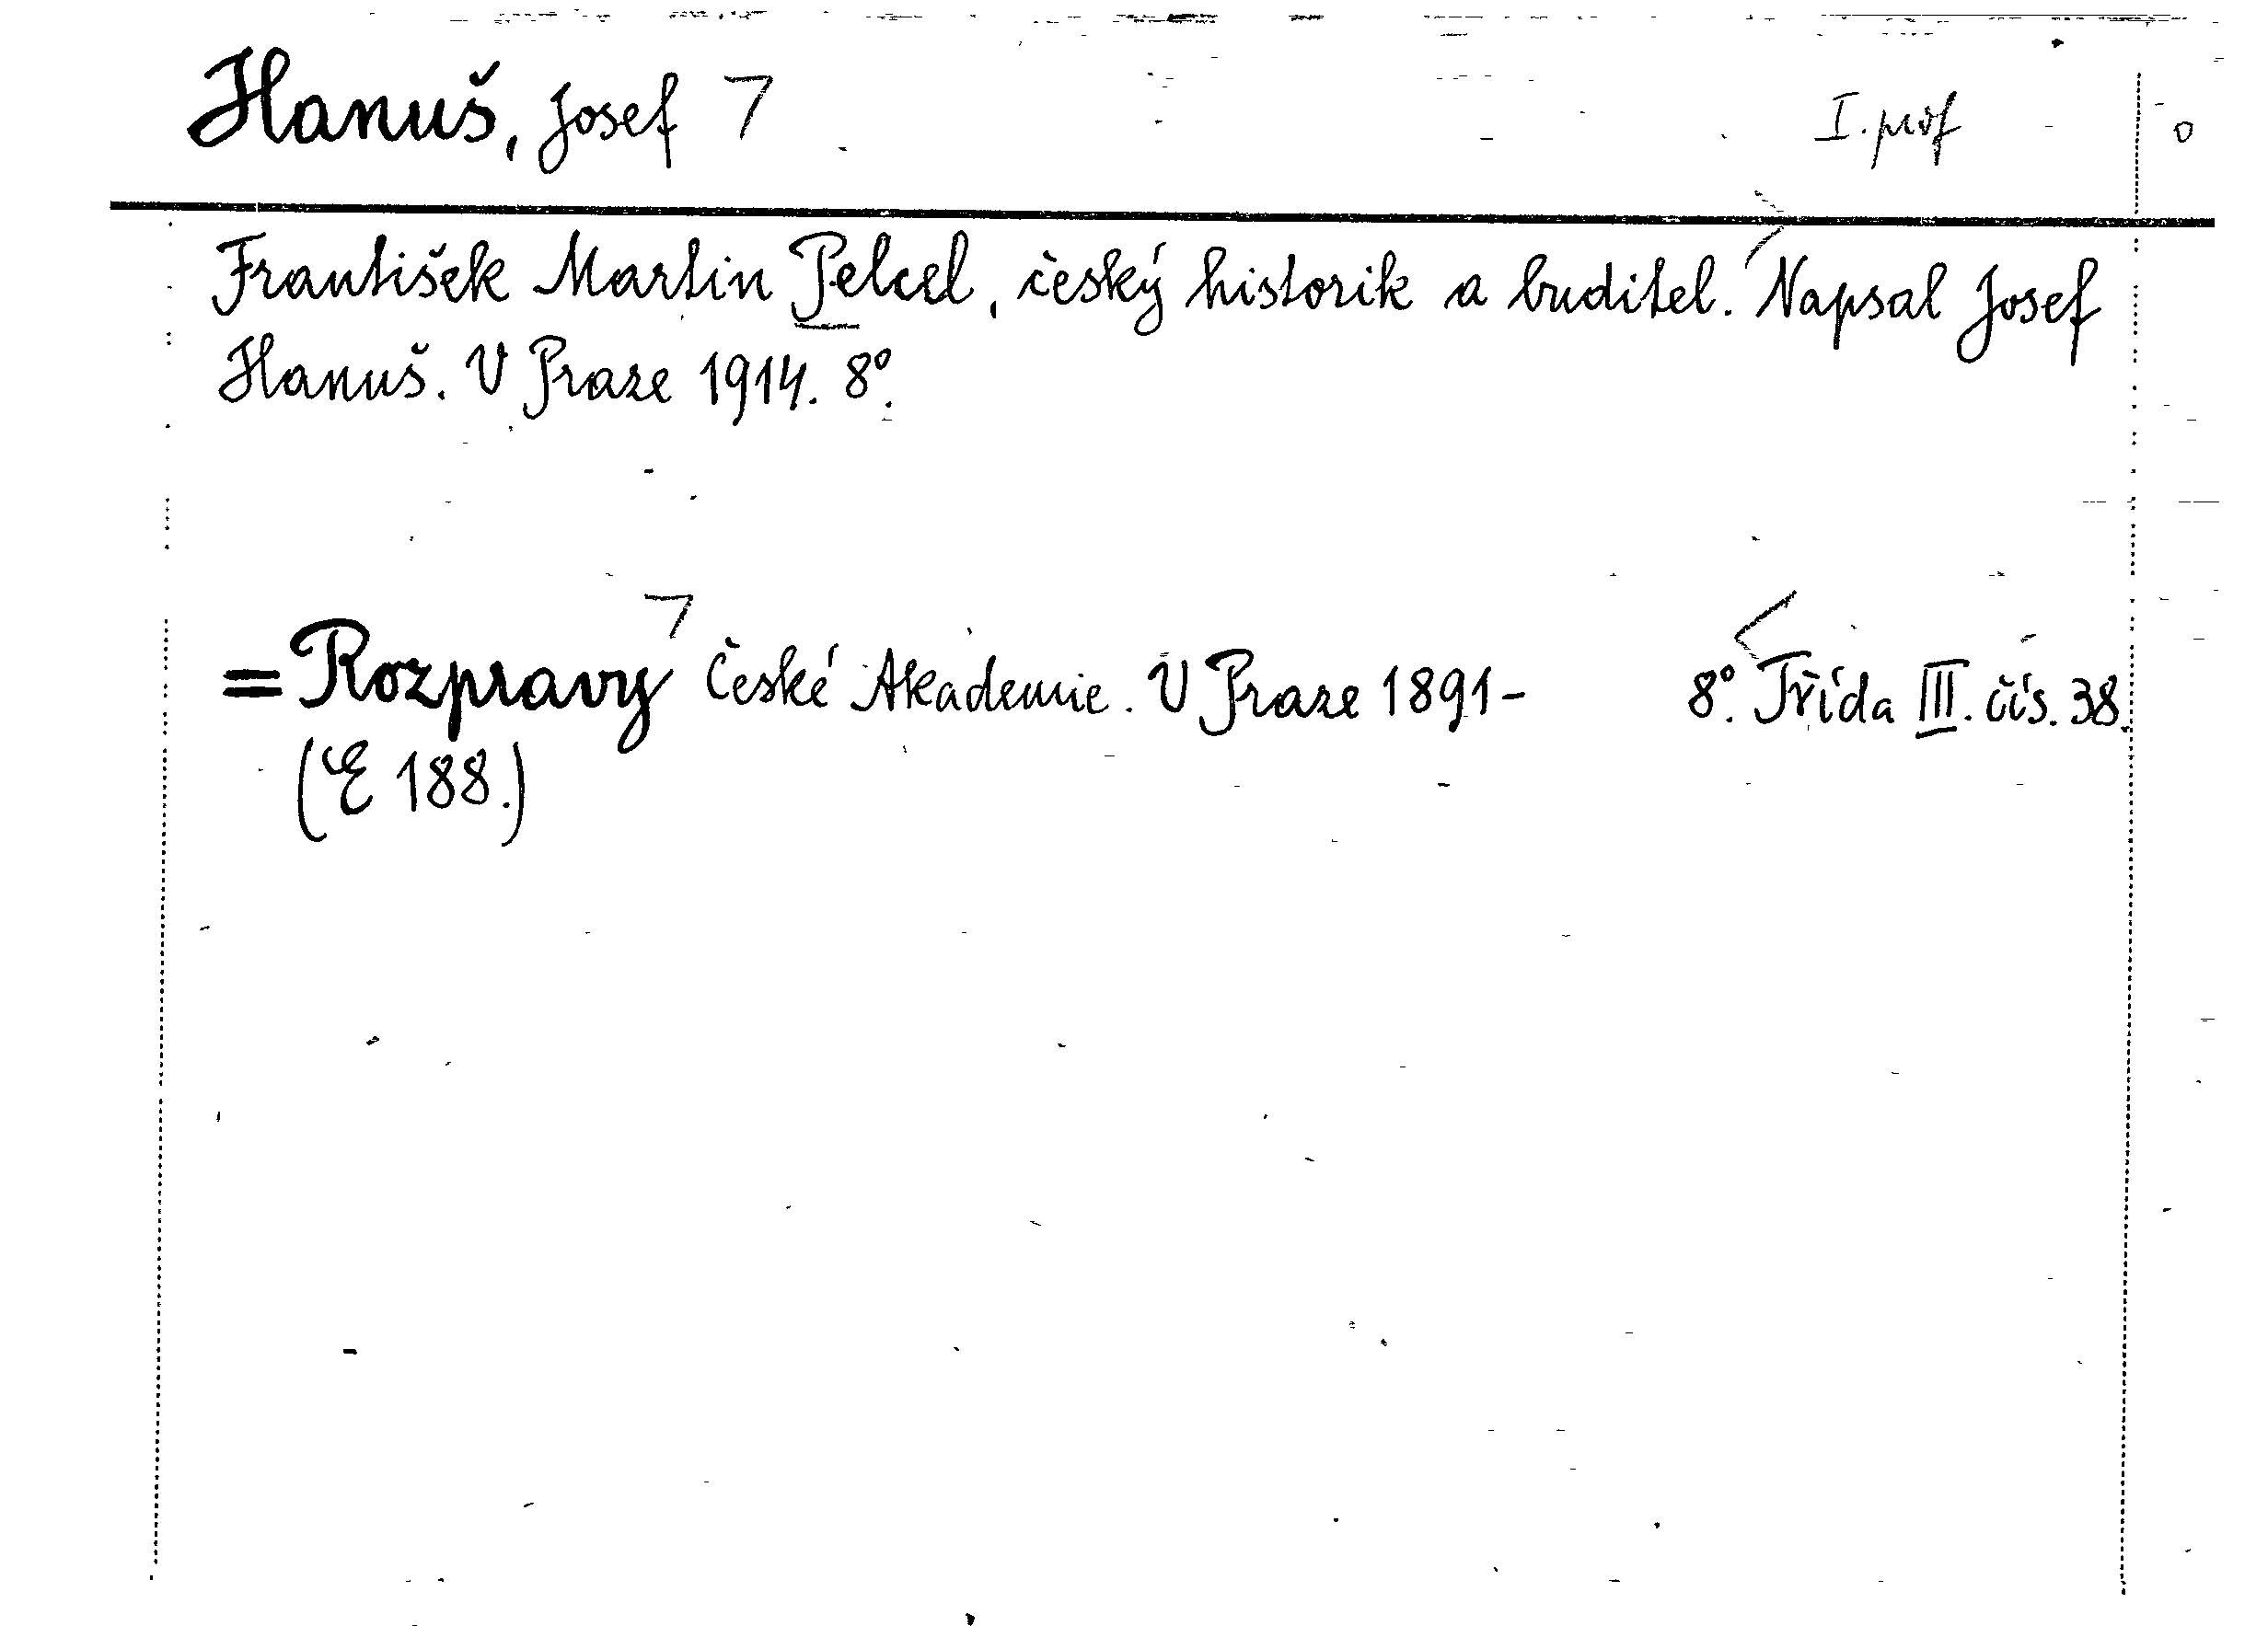 Hanuš, Josef I. prof
František Martin Pelcel, český historik a buditel. Napsal Josef
Hanuš. V Praze 1914. 8°.
= Rozpravy České Akademie. V Praze 1891- 8°. Třída III. čís. 38.
(E 188.)